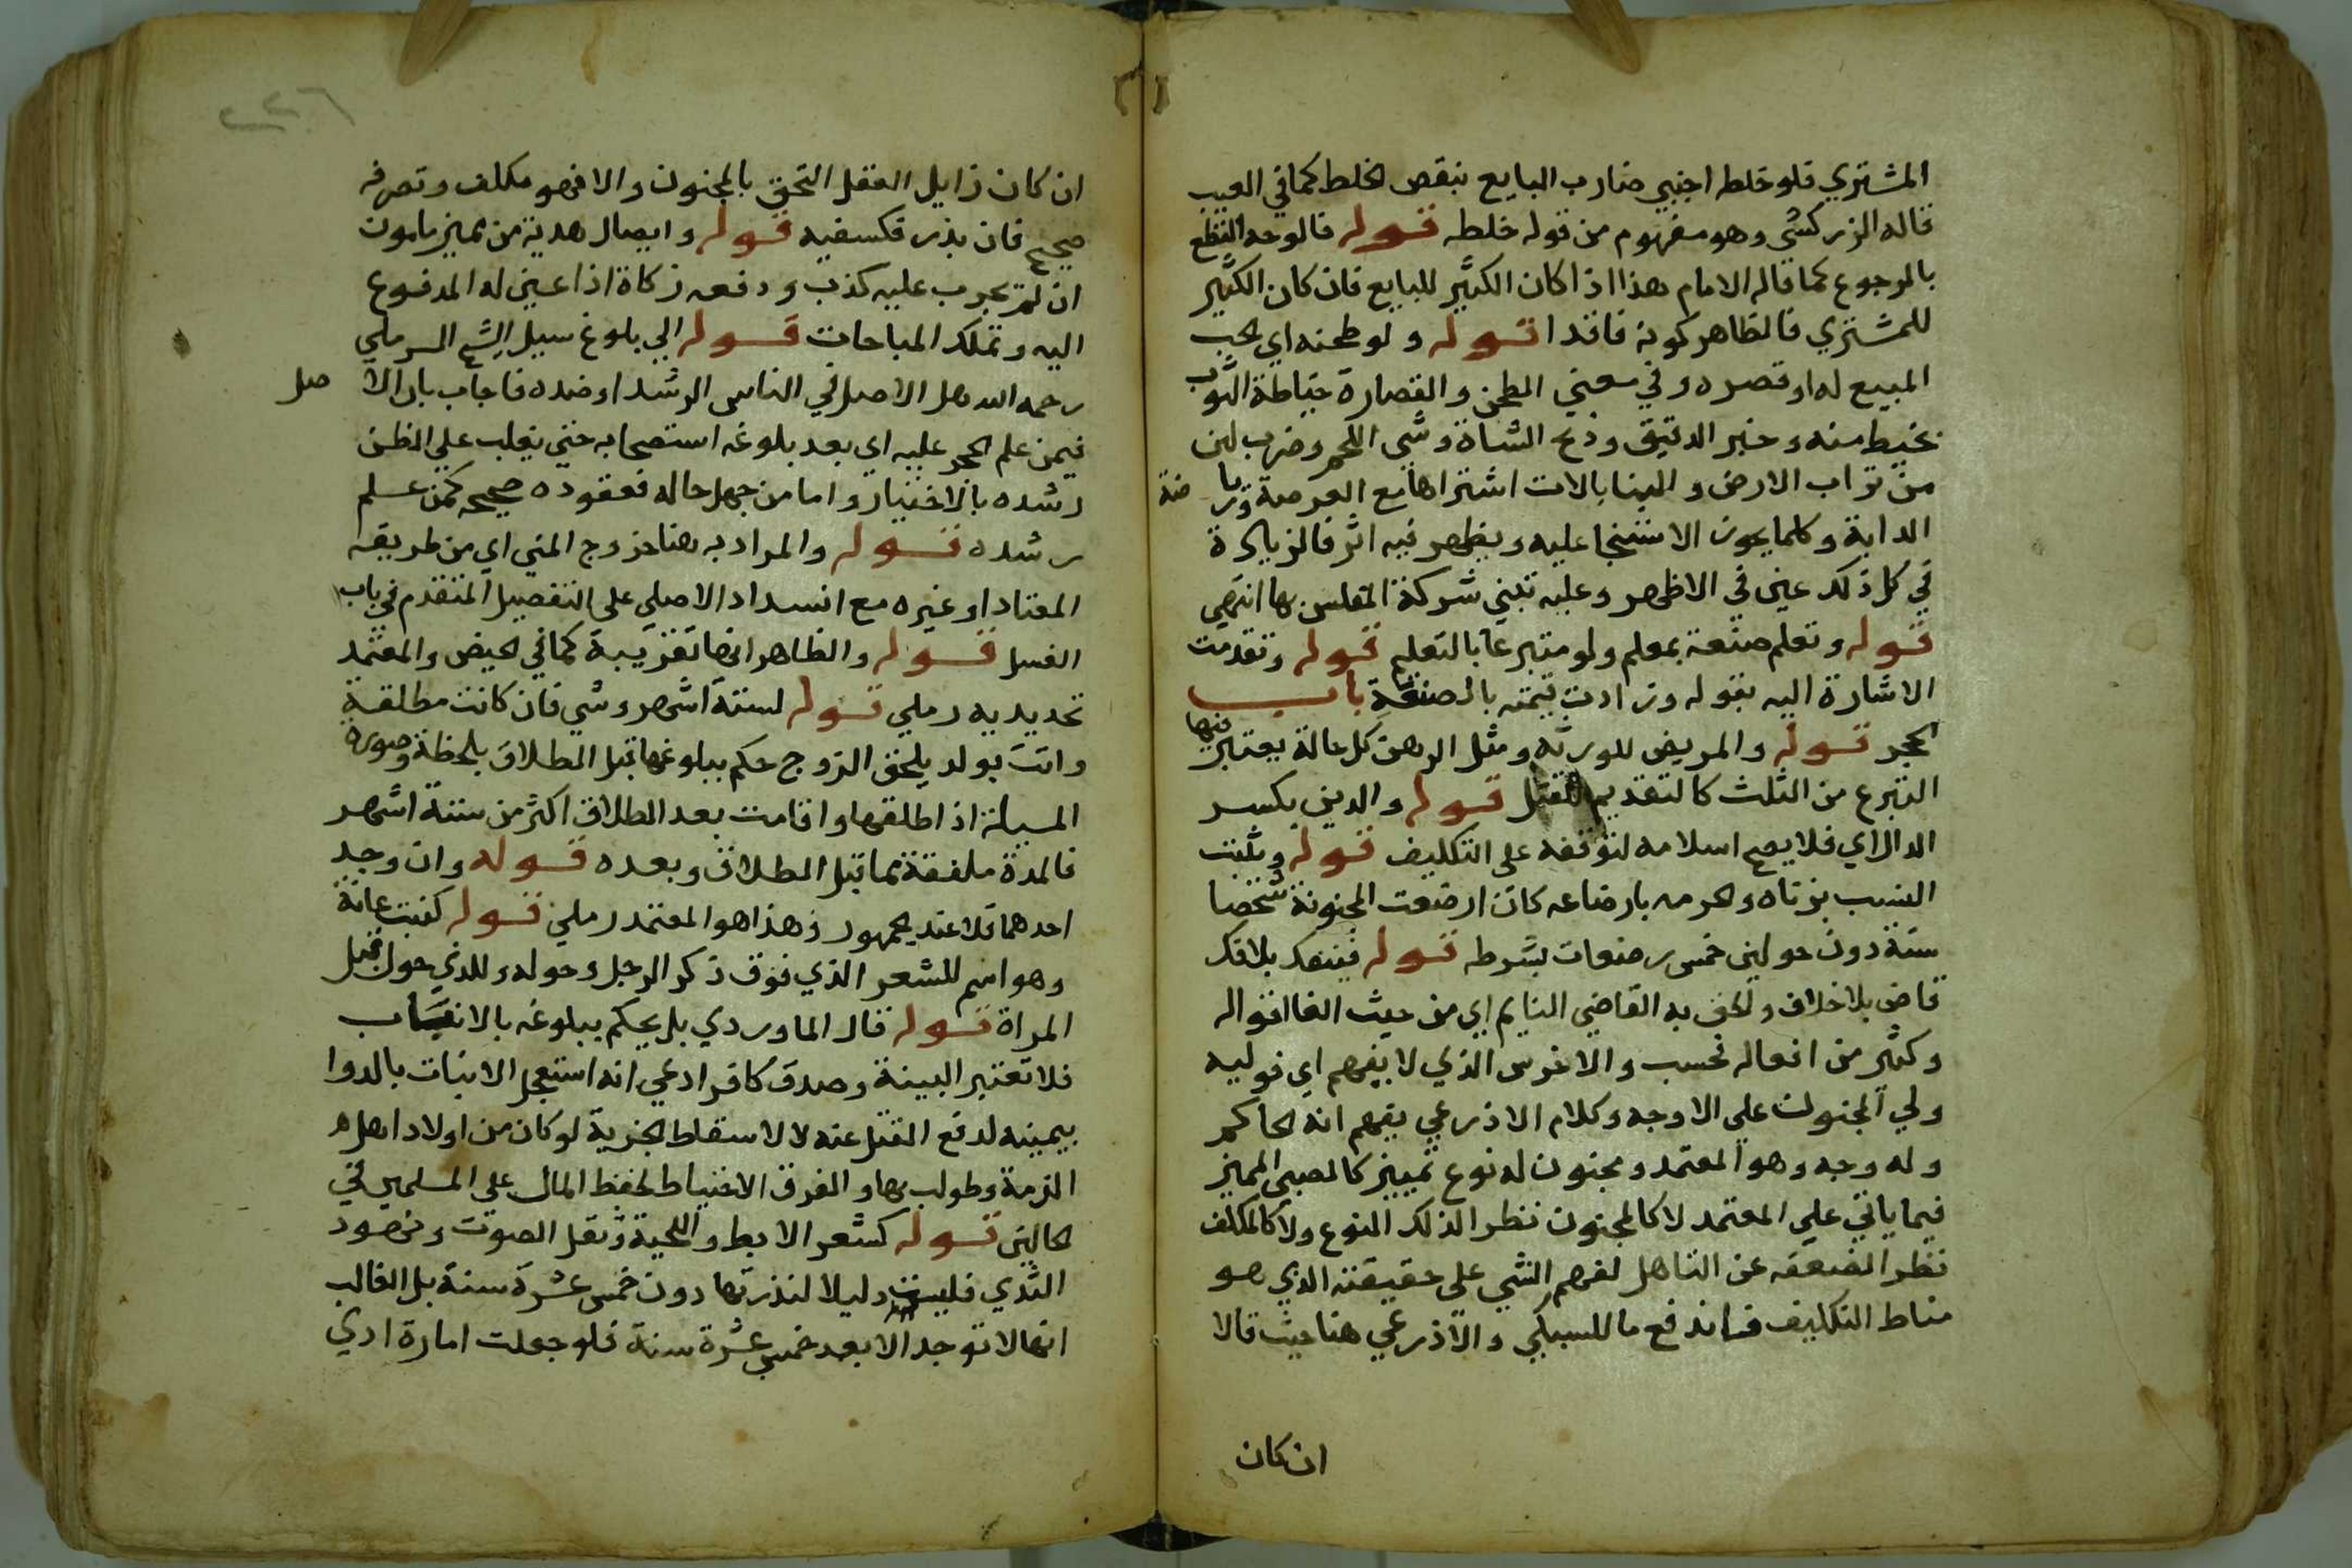 المشتري فلو خلطه اجنبي ضارب البايع بنقص الخلط كما في العيب
قاله الزركشي وهو مفهوم من قوله خلطه قوله قالوحه القطع
بالرجوع كما قاله الامام هذا اذا كان الكثير للبايع فان كان الكثير
للمشتري فالظاهر كونه فاقدا قوله ولو طحنه اي لحب
المبيع له او قصره وفي معني الطحن والقصارة خياطة الثوب
بخيط منه وخبز الدقيق وذبح الشاة وشي اللحم وضرب لبن
من تراب الارض والبنا بالات اشتراها مع العرصة وريا ضة
الدابة وكلما يجوز الاستيجا عليه ويظهر فيه اثر فالزيادة
في كل ذلك عين في الاظهر وعليه تبني شركة المفلس بها انتهي
قوله وتعلم صنعة بمعلم ولو متبرعا بالتعليم قوله وتقدمت
الاشارة اليه بقوله وزادت قيمته بالصنعة باب
الحجر قوله والمريض للورثة ومثل الرهن كل حالة يعتبر فيها
التبرع من الثلث كالتقديم للقتل قوله والدين بكسر
الدال اي فلا يصح اسلامه لتوقفه على التكليف قوله ويثبت
النسب بزناه والحرمه بارضاعه كان ارضعت المجنونة شخصا
سنة دون حولين خمس رضعات بشرطه قوله فينفك بلا فك
قاض بلا خلاف والحق به القاضي النايم اي من حيث الغا اقواله
وكثير من افعاله فحسب والاخرس الذي لا يفهم اي فوليه
ولي المجنون على الاوجه وكلام الاذرعي يفهم انه الحاكم
وله وجه وهو المعتمد ومجنون له نوع تمييز كالصبي المميز
فيما ياتي علي المعتمد لا كالمجنون نظرا لذلك النوع ولا كالمكلف
نظرا لضعفه عن التاهل لفهم الشي على حقيقته الذي هو
مناط التكليف فاندفع ما للسبكي والاذرعي هنا حيث قالا
ان كان
ان كان زايل العقل التحق بالمجنون والا فهو مكلف وتصرفه
صحيح فان بذر فكسفيه قوله وايصال هدية من مميز مامون
ان لم يجرب عليه كذب ودفعه زكاة اذا عين له المدفوع
اليه وتملك المباحات قوله الي بلوغ سيل الشيخ الرملي
رحمه الله هل الاصل في الناس الرشد او ضده فاجاب بان الا صل
فيمن علم الحجر عليه اي بعد بلوغه استصحابه حتي يغلب علي الظن
رشده بالاختبار واما من جهل حاله فعقوده صحيحه كمن علم
رشده قوله والمراد به هنا خروج المني اي من طريقه
المعتاد او غيره مع انسداد الاصلي على التفصيل المتقدم في باب
الغسل قوله والظاهر انها تقريبة كما في الحيض والمعتمد
تحديديه رملي قوله لستة اشهر وشي فان كانت مطلقة
واتت بولد يلحق الزوج حكم ببلوغها قبل الطلاق بلحظة وصورة
المسيلة اذا طلقها واقامت بعد الطلاق اكثر من ستة اشهر
فالمدة ملفقة مما قبل الطلاق وبعده قوله وان وجد
احدهما فلا عند الجمهور وهذا هو المعتمد رملي قوله كنبت عانة
وهو اسم للشعر الذي فوق ذكر الرجل وحوله وللذي حول قبل
المراة قوله قال الماوردي بل يحكم ببلوغه بالانبات
فلا تعتبر البينة وصدق كافر ادعي انه استعجل الانبات بالدوا
بيمينه لدفع القتل عنه لا لاسقاط الجزية لو كان من اولاد اهل
الذمة وطولب بها والفرق الاحتياط لحفظ المال على المسلمين في
الحالين قوله كشعر الابط واللحية وثقل الصوت ونهود
الثدي فليست دليلا لندرتها دون خمس عشرة سنة بل الغالب
انها لا توجد الا بعد خمس عشرة سنة فلو جعلت امارة ادي